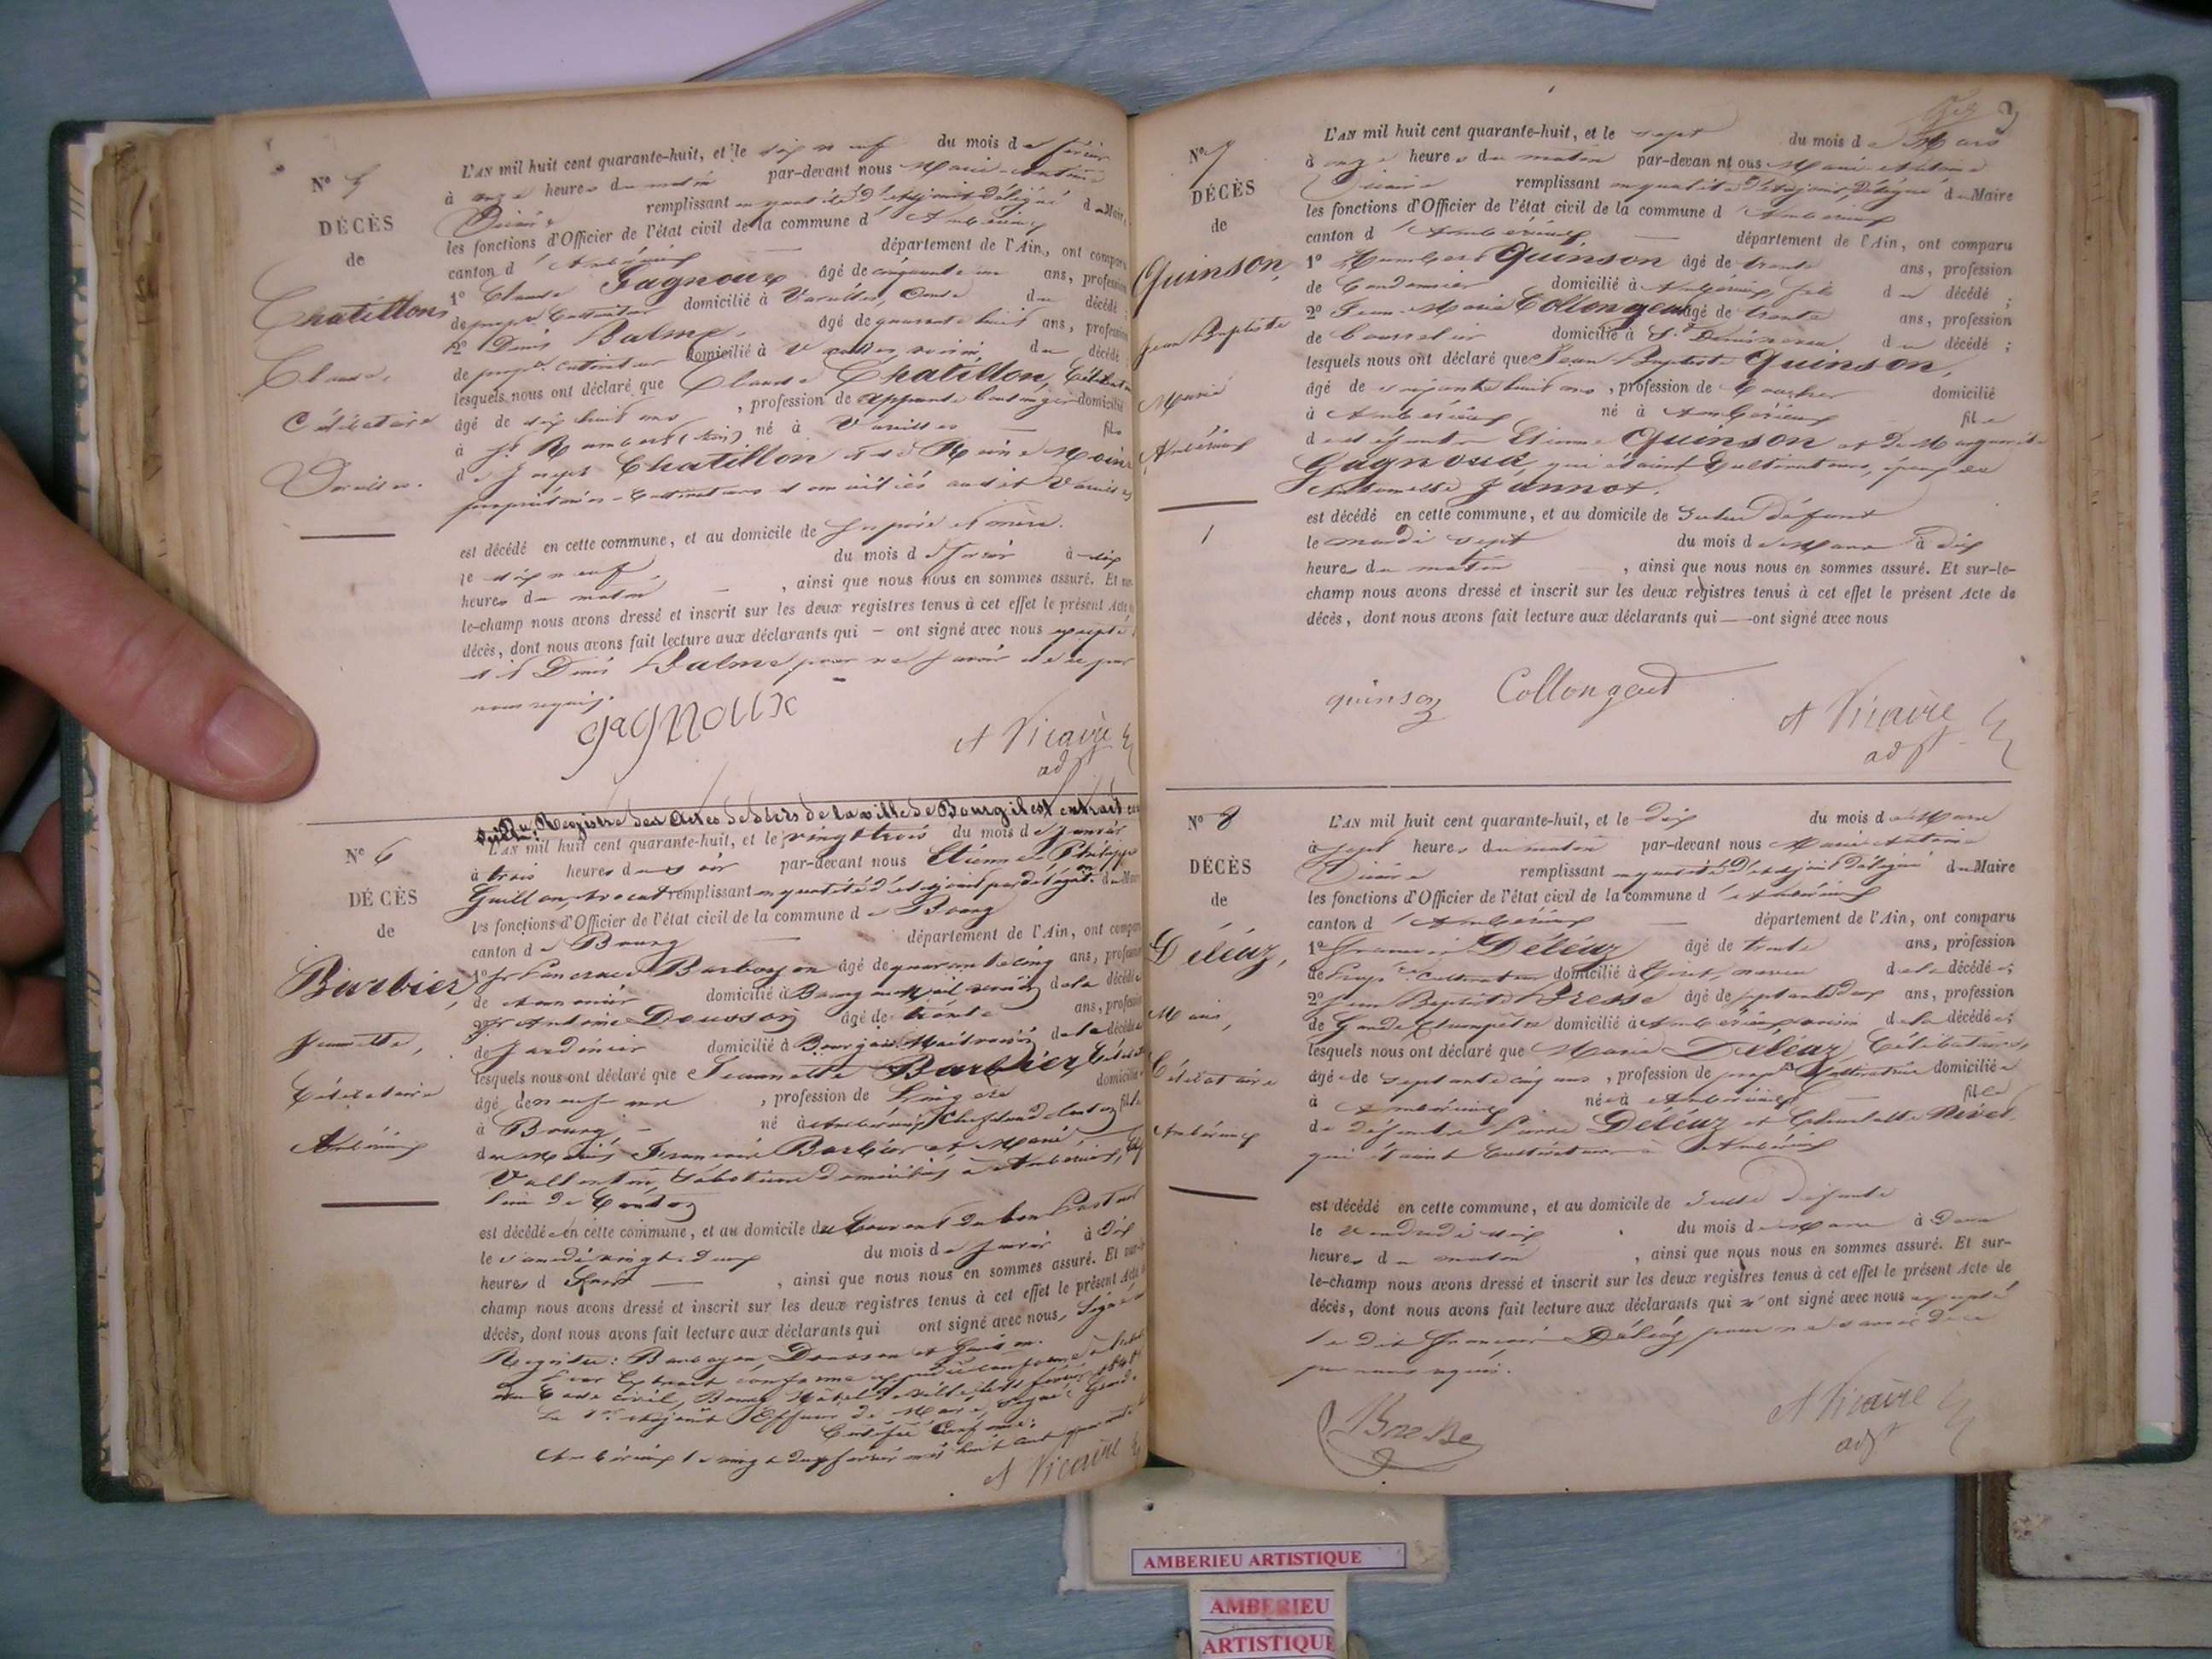 N° 5
DÉCÈS
de
Chatillon,
Claude,
Célibataire
Vareilles.
L'AN mil huit cent quarante-huit, et le dix neuf du mois de février
à onze heures du matin par-devant nous Marie-Antoine
Vicaire remplissant en qualité d'adjoint délégué du Maire,
les fonctions d'Officier de l'état civil de la commune d'Ambérieux
canton d'Ambérieux — département de l'Ain, ont comparu
1° Claude Gagnoux âgé de cinquante un ans, profession
de propre Cultivateur domicilié à Vareilles, du décédé ;
2° Denis Balme, âgé de quarante huit ans, profession
de propre cultivateur domicilié à Vareilles voisin, du décédé
lesquels nous ont déclaré que Claude Chatillon, Célibataire
âgé de dix huit ans , profession de apprenti boulanger domicilié
à St Rambert (Ain) né à Vareilles — fils
de Joseph Chatillon et de Reine
propriétaires-Cultivateurs domiciliés audit Vareilles
est décédé en cette commune, et au domicile de ses père et mère.
le dix neuf du mois de février à dix
heures du matin — , ainsi que nous nous en sommes assuré. Et sur-
le-champ nous avons dressé et inscrit sur les deux registres tenus à cet effet le présent Acte de
décès, dont nous avons fait lecture aux déclarants qui — ont signé avec nous excepté
led Denis Balme pour ne savoir de ce par
nous requis.
gagnoux
A Vicaire
adjt
Du Registre des Actes de décès de la ville de Bourg il est extrait ce
qui suit:
N° 6
DÉCÈS
de
Barbier,
Jeannette,
Célibataire
Ambérieux
L'AN mil huit cent quarante-huit, et le vingt trois du mois de janvier
à trois heures du soir par-devant nous Etienne Philippe
Guillon, avocat remplissant en qualité d'adjoint par délégation du Maire
les fonctions d'Officier de l'état civil de la commune de Bourg
canton de Bourg — département de l'Ain, ont comparu
1° Sr Barboyon âgé de quarante cinq ans, profession
de domicilié à Bourg au Mail voisin de la décédée
2° Sr Antoine Dousson âgé de trente ans, profession
de Jardinier domicilié à Bourg au Mail voisin de la décédée
lesquels nous ont déclaré que Jeannette Barbier, Célibataire
âgé de neuf ans , profession de Lingère domicilié
à Bourg — né à Ambérieux, Chef lieu de Canton fille
de Marie Barbier et Marie
domiciliés à Ambérieux, Chef
lieu de Canton
est décédée en cette commune, et au domicile du Couvent du bon Pasteur
le Samedi vingt deux du mois de janvier à dix
heures d — , ainsi que nous nous en sommes assuré. Et sur-le-
champ nous avons dressé et inscrit sur les deux registres tenus à cet effet le présent Acte de
décès, dont nous avons fait lecture aux déclarants qui ont signé avec nous, Signé au
Registre: Barboyon, Dousson et Guillon.
Pour Extrait conforme
du Code civil, Bourg Hôtel de ville le février 1848
Le 1er adjoint Officier de Maire, Signé
Certifié Conforme:
Ambérieux le vingt deux février mil huit cent quarante
A Vicaire
N° 7
DÉCÈS
de
Quinson,
Jean Baptiste
Marié
Ambérieux
1
L'AN mil huit cent quarante-huit, et le sept du mois de Mars
à onze heures du matin par-devan nt ous Marie Antoine
Vicaire remplissant en qualité d'adjoint délégué du Maire
les fonctions d'Officier de l'état civil de la commune d'Ambérieux
canton d'Ambérieux — département de l'Ain, ont comparu
1° Humbert Quinson âgé de trente ans, profession
de Cordonnier domicilié à Ambérieux, fils du décédé ;
2° Jean-Marie Collongeat âgé de trente ans, profession
de bourrelier domicilié à St du décédé ;
lesquels nous ont déclaré que Jean Baptiste Quinson,
âgé de soixante huit ans , profession de Boucher domicilié
à Ambérieux né à Ambérieux fils
de défunts Etienne Quinson et de Marguerite
Gagnoux, qui étaient Cultivateurs, époux de
Antoinette Jannot.
est décédé en cette commune, et au domicile de Sudit Défunt
le mardi sept du mois de Mars à dix
heures du matin , ainsi que nous nous en sommes assuré. Et sur-le-
champ nous avons dressé et inscrit sur les deux registres tenus à cet effet le présent Acte de
décès, dont nous avons fait lecture aux déclarants qui — ont signé avec nous
quinson Collongeat
A Vicaire
adjt
N° 8
DÉCÈS
de
Déléaz,
Marie,
Célibataire
Ambérieux
L'AN mil huit cent quarante-huit, et le dix du mois de Mars
à sept heures du matin par-devant nous Marie Antoine
Vicaire remplissant en qualité d'adjoint délégué du Maire
les fonctions d'Officier de l'état civil de la commune d'Ambérieux
canton d'Ambérieux — département de l'Ain, ont comparu
1° François Déléaz âgé de trente ans, profession
de propre cultivateur domicilié à neveu de la décédée ;
2° Jean Baptiste Bresse âgé de septante deux ans, profession
de Garde Champêtre domicilié à Ambérieux voisin de la décédée ;
lesquels nous ont déclaré que Marie Déléaz, Célibataire,
âgée de septante cinq ans , profession de propre Cultivatrice domiciliée
à Ambérieux née à Ambérieux — fille
de défunts Pierre Déléaz et Charlotte Nivet,
qui étaient Cultivateurs à Ambérieux
est décédé en cette commune, et au domicile de Sudite défunte
le vendredi dix du mois de Mars à deux
heures du matin , ainsi que nous nous en sommes assuré. Et sur-
le-champ nous avons dressé et inscrit sur les deux registres tenus à cet effet le présent Acte de
décès, dont nous avons fait lecture aux déclarants qui ont signé avec nous excepté
le dit François Déléaz pour ne savoir de ce
par nous requis.
Bresse
A Vicaire
adjt
AMBERIEU ARTISTIQUE
AMBERIEU
ARTISTIQUE